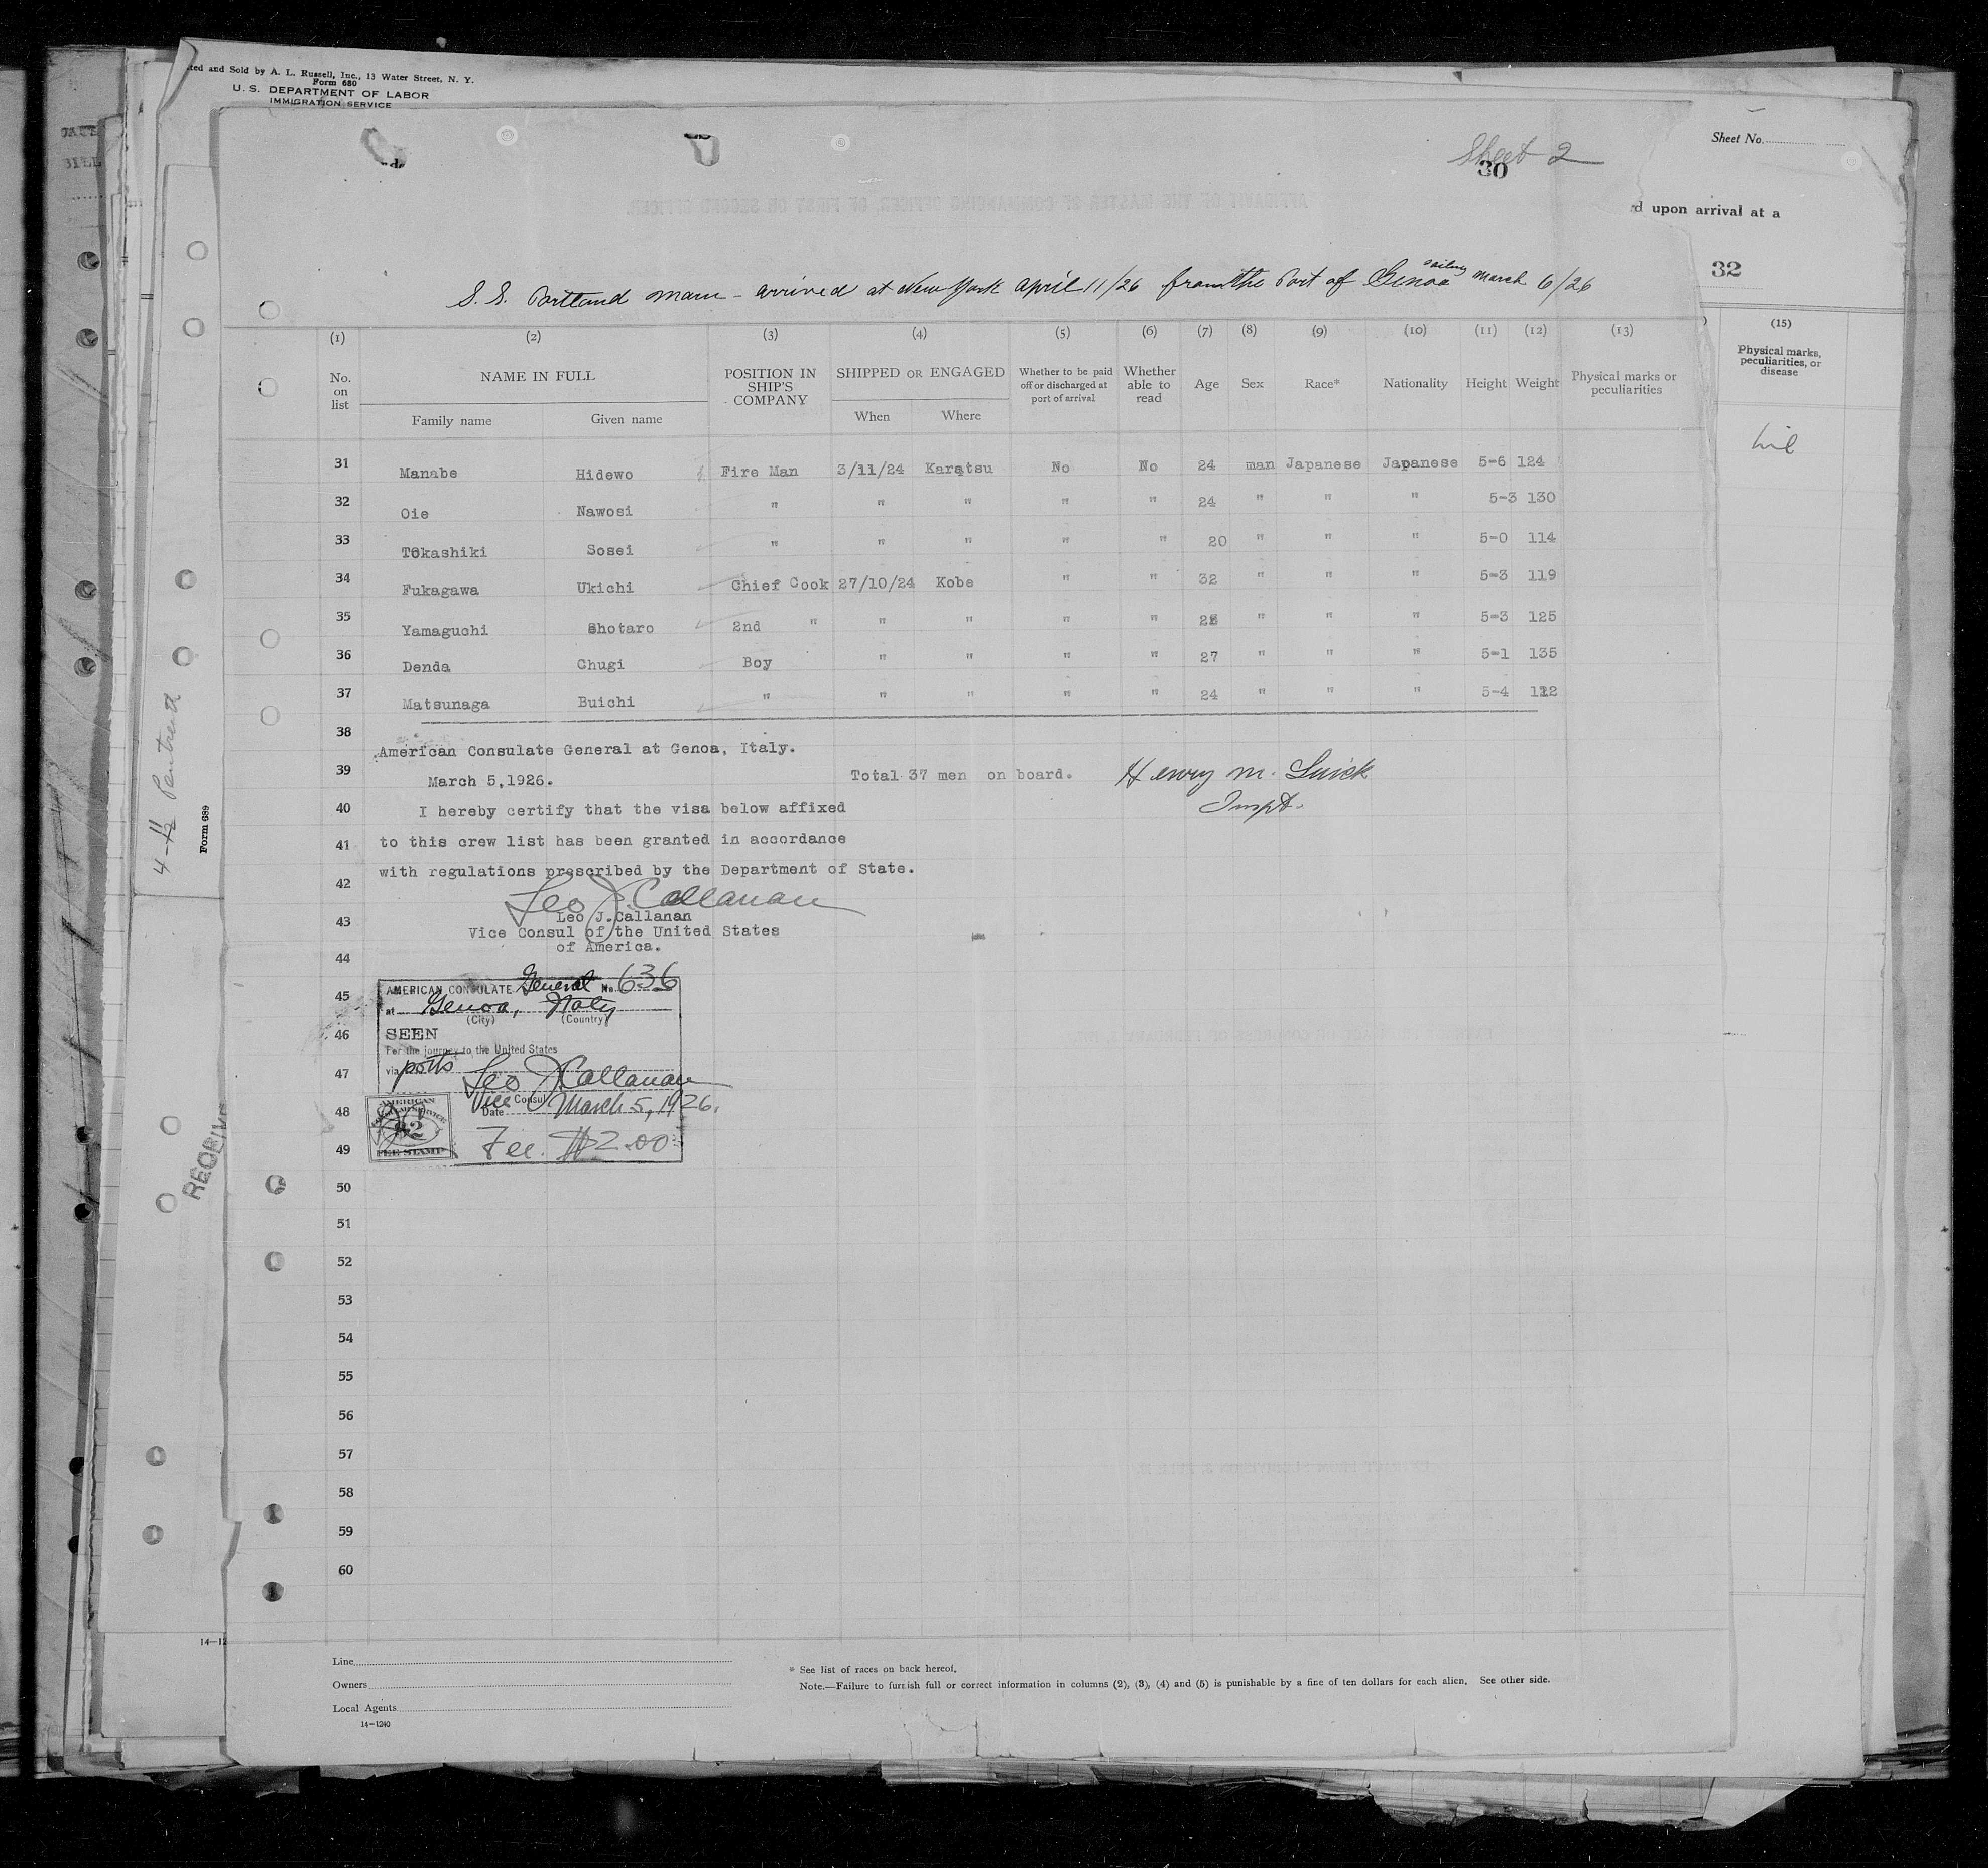 ted and Sold by A. L. Russell, Inc., 13 Water Street, N. Y.
Form 680
U. S. DEPARTMENT OF LABOR
IMMIGRATION SERVICE
Sheet No.
Sheet 2
30
d upon arrival at a
32
S. S. Portland Maru - arrived at New York April 11/26 from the Port of Genoa sailing March 6/26
(1) (2) (3) (4) (5) (6) (7) (8) (9) (10) (11) (12) (13) (15)
No. on list NAME IN FULL POSITION IN SHIP'S COMPANY SHIPPED OR ENGAGED Whether to be paid off or discharged at port of arrival Whether able to read Age Sex Race* Nationality Height Weight Physical marks or peculiarities Physical marks, peculiarities, or disease
Family name Given name When Where
31 Manabe Hidewo Fire Man 3/11/24 Karatsu No No 24 man Japanese Japanese 5-6 124
nil
32 Oie Nawosi " " " " " 24 " " " 5-3 130
33 Tokashiki Sosei " " " " " 20 " " " 5-0 114
34 Fukagawa Ukichi Chief Cook 27/10/24 Kobe " " 32 " " " 5-3 119
35 Yamaguchi Shotaro 2nd " " " " " " " " 5-3 125
36 Denda Chugi Boy " " " " 27 " " " 5-1 135
37 Matsunaga Buichi " " " " " 24 " " " 5-4 112
38
American Consulate General at Genoa, Italy.
39 March 5,1926. Total 37 men on board. Henry M.
Inspt.
40 I hereby certify that the visa below affixed
41 to this crew list has been granted in accordance
with regulations prescribed by the Department of State.
42 Leo J. Callanan
43 Leo J.Callanan
Vice Consul of the United States
of America.
44
AMERICAN CONSULATE General No. 636
45 at Genoa, Italy
(City) (Country)
46 SEEN
For the journey to the United States
47 via ports
Leo J Callanan
Vice Consul
48 Date March 5, 1926.
AMERICAN
$2
FEE STAMP
49 Fee. $2.00
50
51
52
53
54
55
56
57
58
59
60
Form 689
4-11
RECEIV
14-12
Line
Owners
Local Agents
14-1240
* See list of races on back hereof.
Note.—Failure to furnish full or correct information in columns (2), (3), (4) and (5) is punishable by a fine of ten dollars for each alien. See other side.